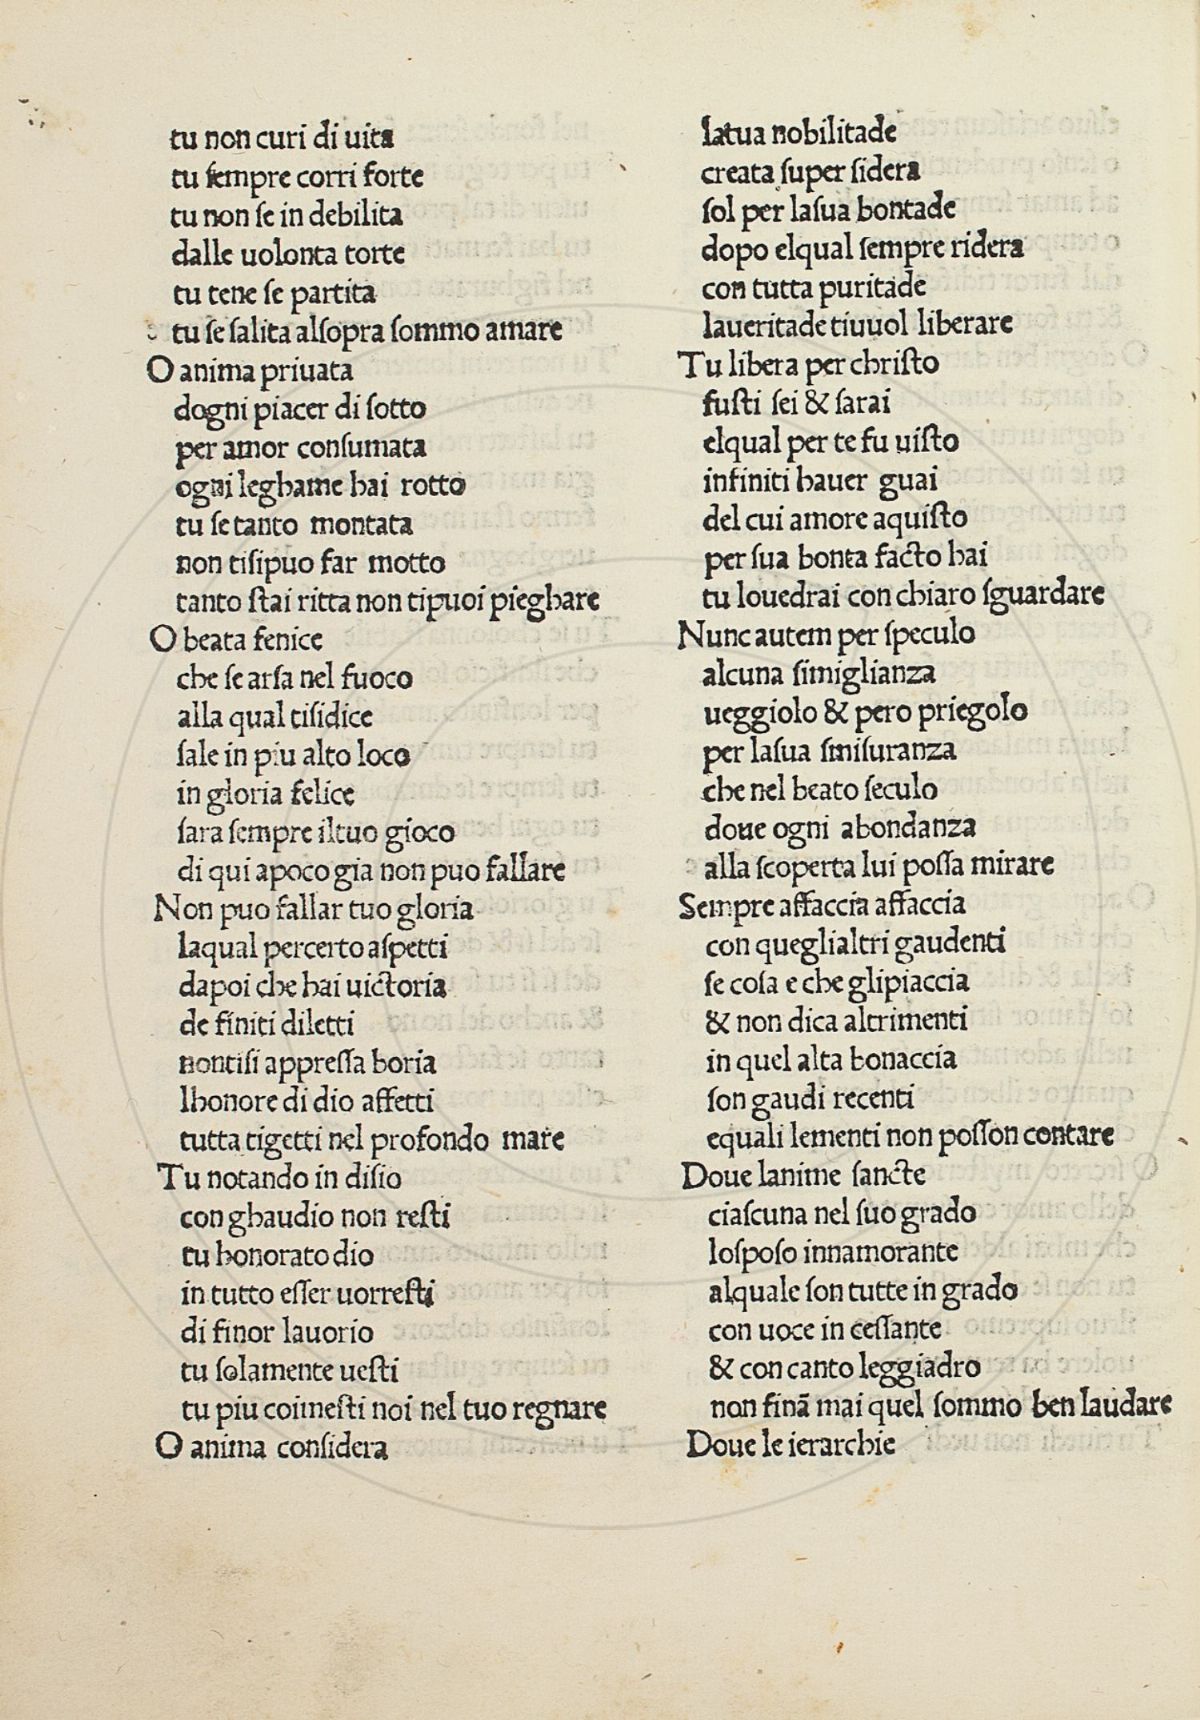 tu non curi di uita
tu ſempre corri forte
tu non ſe in debilita
dalle uolonta torte
tu tene ſe partita
tu ſe ſalita alſopra ſommo amare
O anima priuata
dogni piacer di ſotto
per amor conſumata
ogni leghame hai rotto
tu ſe tanto montata
non tiſipuo far motto
tanto ſtai ritta non tipuoi pieghare
O beata fenice
che ſe arſa nel fuoco
alla qual tiſidice
ſale in piu alto loco
in gloria felice
ſara ſempre iltuo gioco
di qui apoco gia non puo fallare
Non puo fallar tuo gloria
laqual percerto aſpetti
dapoi che hai uictoria
de finiti diletti
nontiſi appreſſa boria
lhonore di dio affetti
tutta tigetti nel profondo mare
Tu notando in diſio
con ghaudio non reſti
tu honorato dio
in tutto eſſer uorreſti
di finor lauorio
tu ſolamente ueſti
tu piu coimeſti noi nel tuo regnare
O anima conſidera
latua nobilitade
creata ſuper ſidera
ſol per laſua bontade
dopo elqual ſempre ridera
con tutta puritade
laueritade tiuuol liberare
Tu libera per chriſto
fuſti ſei & ſarai
elqual per te fu uiſto
infiniti hauer guai
del cui amore aquiſto
per ſua bonta facto hai
tu louedrai con chiaro ſguardare
Nunc autem per ſpeculo
alcuna ſimiglianza
ueggiolo & pero priegolo
per laſua ſmiſuranza
che nel beato ſeculo
doue ogni abondanza
alla ſcoperta lui poſſa mirare
Sempre affaccia affaccia
con queglialtri gaudenti
ſe coſa e che glipiaccia
& non dica altrimenti
in quel alta bonaccia
ſon gaudi recenti
equali lementi non poſſon contare
Doue lanime ſancte
ciaſcuna nel ſuo grado
loſpoſo innamorante
alquale ſon tutte in grado
con uoce in ceſſante
& con canto leggiadro
non finā mai quel ſommo ben laudare
Doue le ierarchie